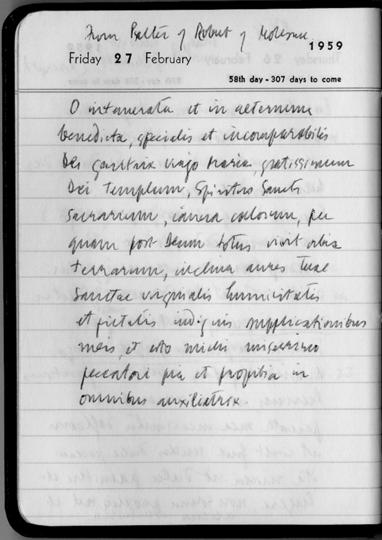 From Psalter of Robert of Molesme
1959
Friday 27 February
58th day - 307 days to come
O intemerata et in aeternum
benedicta, specialis et incomparabilis
Dei genitrix virgo Maria, gratissimum
Dei Templum, Spiritus Sancti
Sacrarium, ianua caelorum, per
quam post Deum totus vivit orbis
terrarum, inclina aures tuae
sanctae virginalis humilitatis
et pietatis indignis supplicationibus
meis, et esto mihi miserrimo
peccatori pia et propitia in
omnibus auxiliatrix.